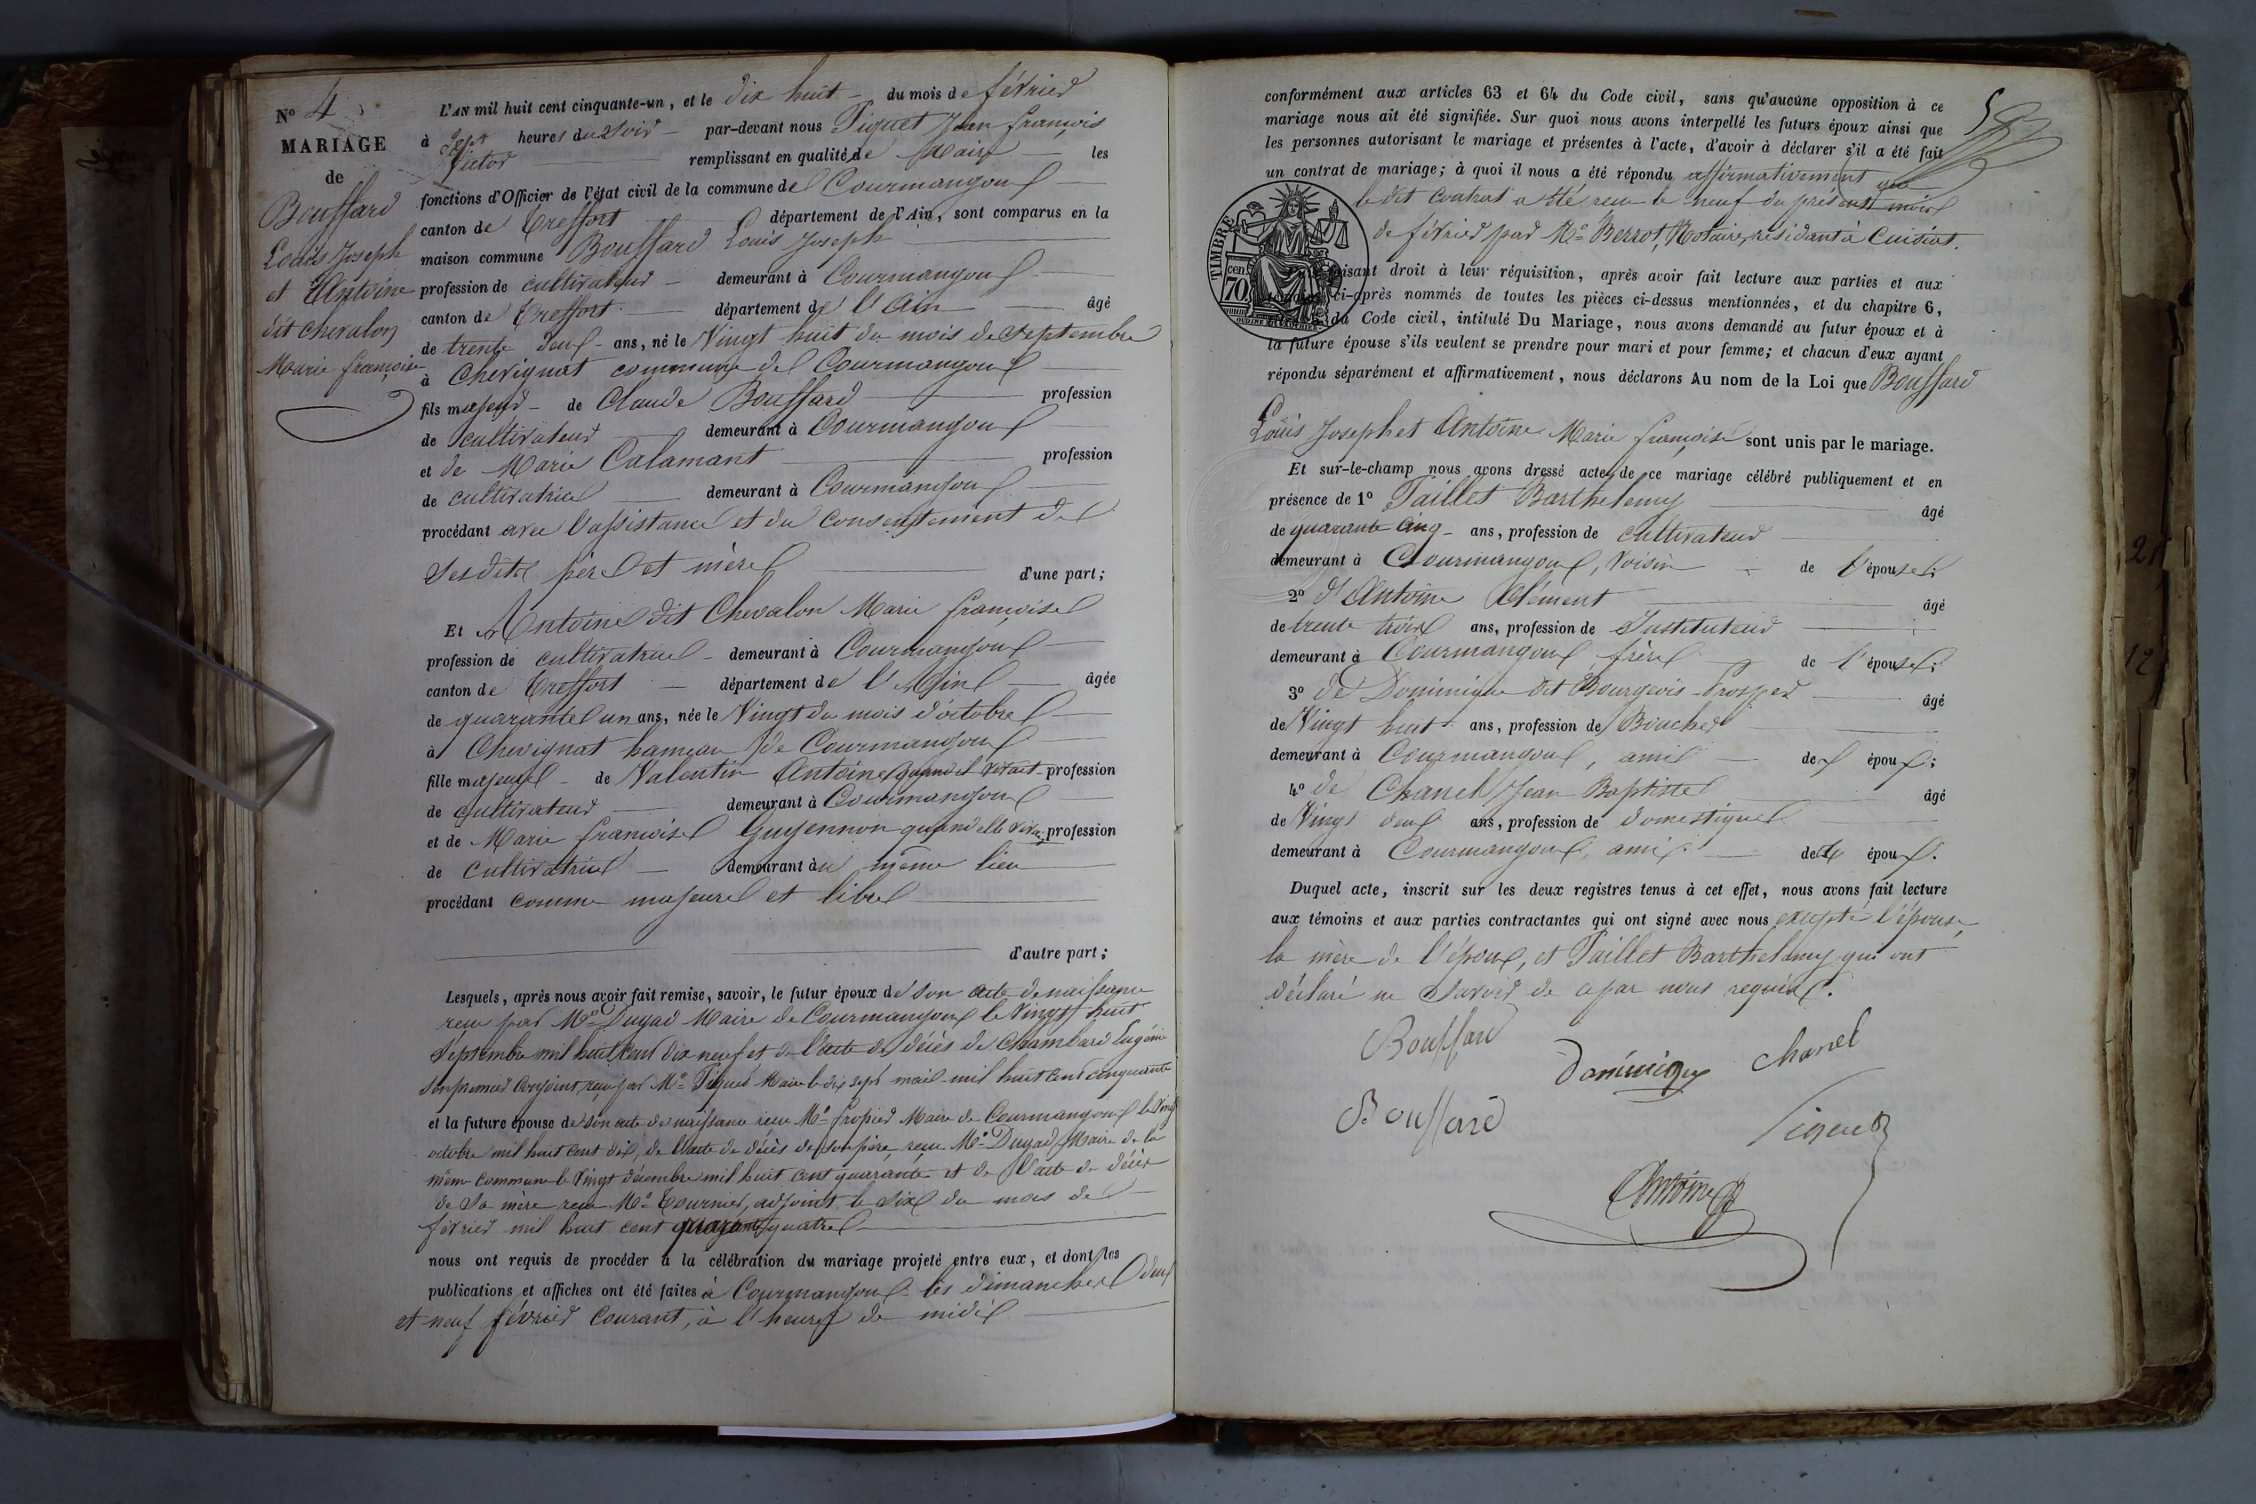 No 4
MARIAGE
de
Bouffard
Louis Joseph
et Antoine
dit Chevalon
Marie françoise
L'AN mil huit cent cinquante-un, et le dix huit du mois de février
à sept heures du soir par-devant nous Piquet Jean françois
Victor remplissant en qualité de Maire les
fonctions d'Officier de l'état civil de la commune de Courmangoux
canton de Treffort département de l'Ain, sont comparus en la
maison commune Bouffard Louis Joseph
profession de cultivateur demeurant à Courmangoux
canton de Treffort département de l'Ain âgé
de trente deux ans, né le Vingt huit du mois de Septembre
à Chevignat commune de Courmangoux
fils majeur de Claude Bouffard profession
de cultivateur demeurant à Courmangoux
et de Marie Calamant profession
de cultivatrice demeurant à Courmangoux
procédant avec l'assistance et du consentement de
Sesdits père et mère d'une part;
Et Antoine dit Chevalon Marie françoise
profession de cultivatrice demeurant à Courmangoux
canton de Treffort département de l'Ain âgée
de quarante un ans, née le Vingt du mois d'octobre
à Chevignat hameau de Courmangoux
fille majeure de Valentin Antoine quand il vivait profession
de cultivateur demeurant à Courmangoux
et de Marie françoise Guyennon quand elle vivait profession
de cultivatrice demeurant au même lieu
procédant comme majeure et libre
d'autre part;
Lesquels, après nous avoir fait remise, savoir, le futur époux de son acte de naissance
reçu par Mr Duyad Maire de Courmangoux le Vingt huit
Septembre mil huit cent dix neuf et de l'acte de décès de Chambard Eugénie
son premier conjoint, reçu par Mr Piquet Maire le dix sept mail mil huit cent cinquante
et la future épouse de son acte de naissance reçu Mr fropied Maire de Courmangoux le Vingt
octobre mil huit cent dix, de l'acte de décès de son père reçu Mr Duyad Maire de la
même commune le Vingt décembre mil huit cent quarante et de l'acte de décès
de Sa mère reçu Mr Tournier, adjoint le Six du mois de
février mil huit cent quarante quatre
nous ont requis de procéder à la célébration du mariage projeté entre eux, et dont les
publications et affiches ont été faites à Courmangoux les dimanches deux
et neuf février Courant, à l'heure de midi
5
conformément aux articles 63 et 64 du Code civil, sans qu'aucune opposition à ce
mariage nous ait été signifiée. Sur quoi nous avons interpellé les futurs époux ainsi que
les personnes autorisant le mariage et présentes à l'acte, d'avoir à déclarer s'il a été fait
un contrat de mariage; à quoi il nous a été répondu affirmativement que
le dit contrat a été reçu le neuf du présent mois
de février par Mr Berrot, Notaire, résidant à Cuisiat.
TIMBRE
cen
70
faisant droit à leur réquisition, après avoir fait lecture aux parties et aux
témoins ci-après nommés de toutes les pièces ci-dessus mentionnées, et du chapitre 6,
du Code civil, intitulé Du Mariage, nous avons demandé au futur époux et à
la future épouse s'ils veulent se prendre pour mari et pour femme; et chacun d'eux ayant
répondu séparément et affirmativement, nous déclarons Au nom de la Loi que Bouffard
Louis Joseph et Antoine Marie françoise sont unis par le mariage.
Et sur-le-champ nous avons dressé acte de ce mariage célébré publiquement et en
présence de 1o Paillet Barthelemy âgé
de quarante cinq ans, profession de cultivateur
demeurant à Courmangoux, voisin de l'épouse;
2o d'Antoine Clément âgé
de trente trois ans, profession de Instituteur
demeurant à Courmangoux, frère de l'épouse;
3o de Dominique dit Bourgeois Prosper âgé
de Vingt huit ans, profession de Boucher
demeurant à Courmangoux, ami des époux;
4o de Chanel Jean Baptiste âgé
de Vingt deux ans, profession de domestique
demeurant à Courmangoux, ami des époux.
Duquel acte, inscrit sur les deux registres tenus à cet effet, nous avons fait lecture
aux témoins et aux parties contractantes qui ont signé avec nous, excepté l'épouse,
la mère de l'époux, et Paillet Barthelemy qui ont
déclaré ne Savoir de ce par nous requis.
Bouffard
Dominique Chanel
Bouffard
Piquet
Antoine